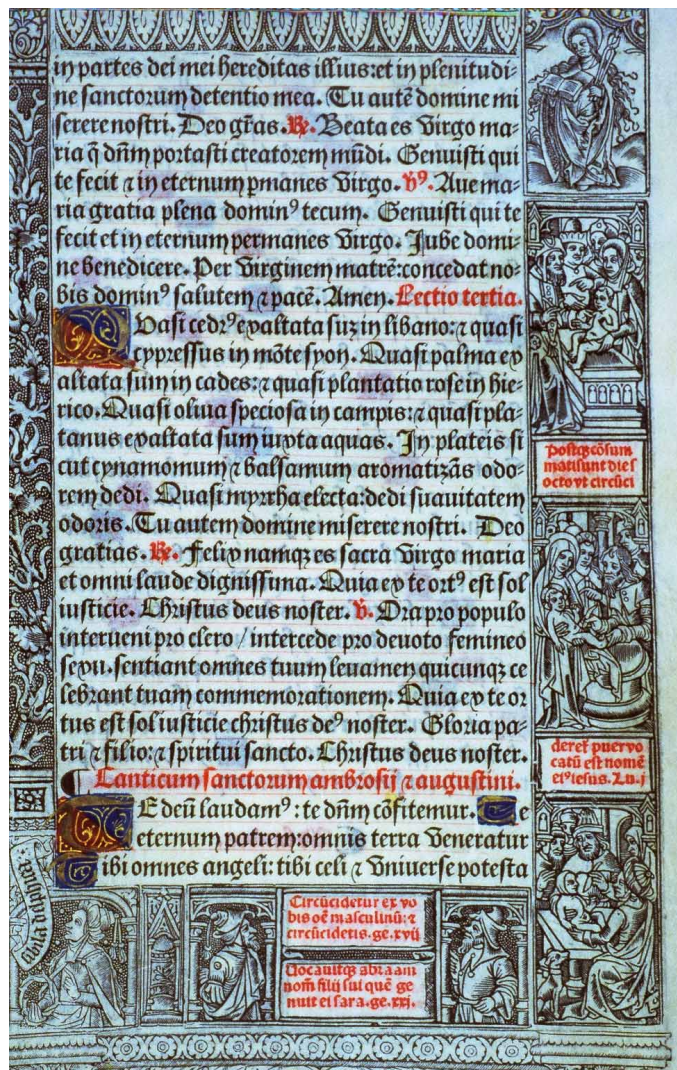 in partes dei mei hereditas illius: et in plenitudi-
ne sanctorum detentio mea. Tu autē domine mi
serere nostri. Deo grās. ℟. Beata es Virgo ma-
ria q̄ dn̄m portasti creatorem mūdi. Genuisti qui
te fecit ⁊ in eternum ꝑmanes Virgo. ℣ꝰ. Aue ma-
ria gratia plena dominꝰ tecum. Genuisti qui te
fecit et in eternum permanes Virgo. Iube domi-
ne benedicere. Per Virginem matrē: concedat no-
bis dominꝰ salutem ⁊ pacē. Amen. Lectio tertia.
Quasi cedrꝰ exaltata suʒ in libano: ⁊ quasi
cypressus in mōte syon. Quasi palma ex
altata sum in cades: ⁊ quasi plantatio rose in hie-
rico. Quasi oliua speciosa in campis: ⁊ quasi pla-
tanus exaltata sum iuxta aquas. In plateis si
cut cynamomum ⁊ balsamum aromatizās odo-
rem dedi. Quasi myrrha electa: dedi suauitatem
odoris. Tu autem domine miserere nostri. Deo
gratias. ℟. Felix namqʒ es sacra Virgo maria
et omni laude dignissima. Quia ex te ortꝰ est sol
iusticie. Christus deus noster. ℣. Ora pro populo
interueni pro clero / intercede pro deuoto femineo
sexu. sentiant omnes tuum leuamen quicunqʒ ce
lebrant tuam commemorationem. Quia ex te or
tus est sol iusticie christus deꝰ noster. Gloria pa-
tri ⁊ filio: ⁊ spiritui sancto. Christus deus noster.
Canticum sanctorum ambrosij ⁊ augustini.
TE deū laudamꝰ: te dn̄m cōfitemur. Te
eternum patrem: omnis terra Veneratur
Tibi omnes angeli: tibi celi ⁊ Vniuerse potesta
Postqʒ cōsum
mati sunt dies
octo vt circūci
deret᷑ puer vo
catū est nomē
eiꝰ iesus. Lu. j
Circūcidetur ex vo
bis oē masculinū: ⁊
circūcidetis. ge. xvij
Uocauitqʒ abraam
nomē filij sui quē ge
nuit ei sara. ge. xxj.